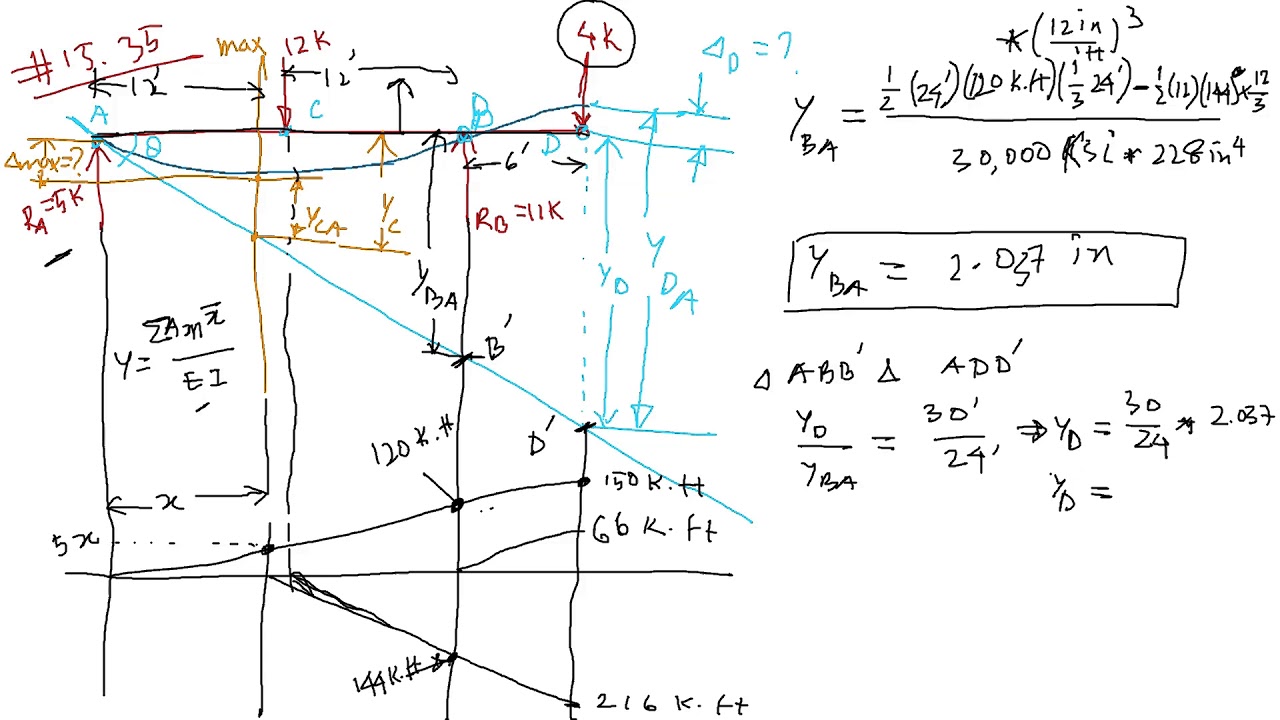 #15.35
max
12K
4K
12'
12'
Δ_D = ?
A
C
B
D
θ
6'
Δmax=?
R_A=5K
R_B=11K
Y_CA
Y_C
Y_BA
Y_D
Y_DA
B'
D'
Y = ΣAm x̄ / EI
120 K.ft
150 K.ft
66 K.ft
x
5x
144 K.ft
216 K.ft
* (12in / 1ft)^3
Y_BA = 1/2 (24')(120 K.ft)(1/3 24') - 1/2 (12)(144) * 12/3
30,000 Ksi * 228 in^4
Y_BA = 2.037 in
Δ ABB' Δ ADD'
Y_D / Y_BA = 30' / 24' ⇒ Y_D = 30/24 * 2.037
Y_D =